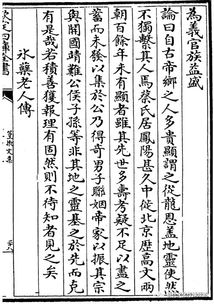 為義官族益盛
論曰自古帝鄉之人多貴顯謂之從龍恩蓋地靈使然
不獨繫其人馬蔡氏居鳳陽甚久中從北京歷高文兩
朝百餘年未有顯者雖其先世多壽考疑不足以盡之
蓄而未發以集於公乃得奇男子聯姻帝家以振其宗
與開國靖難公侯子孫等非其地之靈基之於先而克
有是哉若積善獲報理有固然則不待知者見之矣
氷蘖老人傳